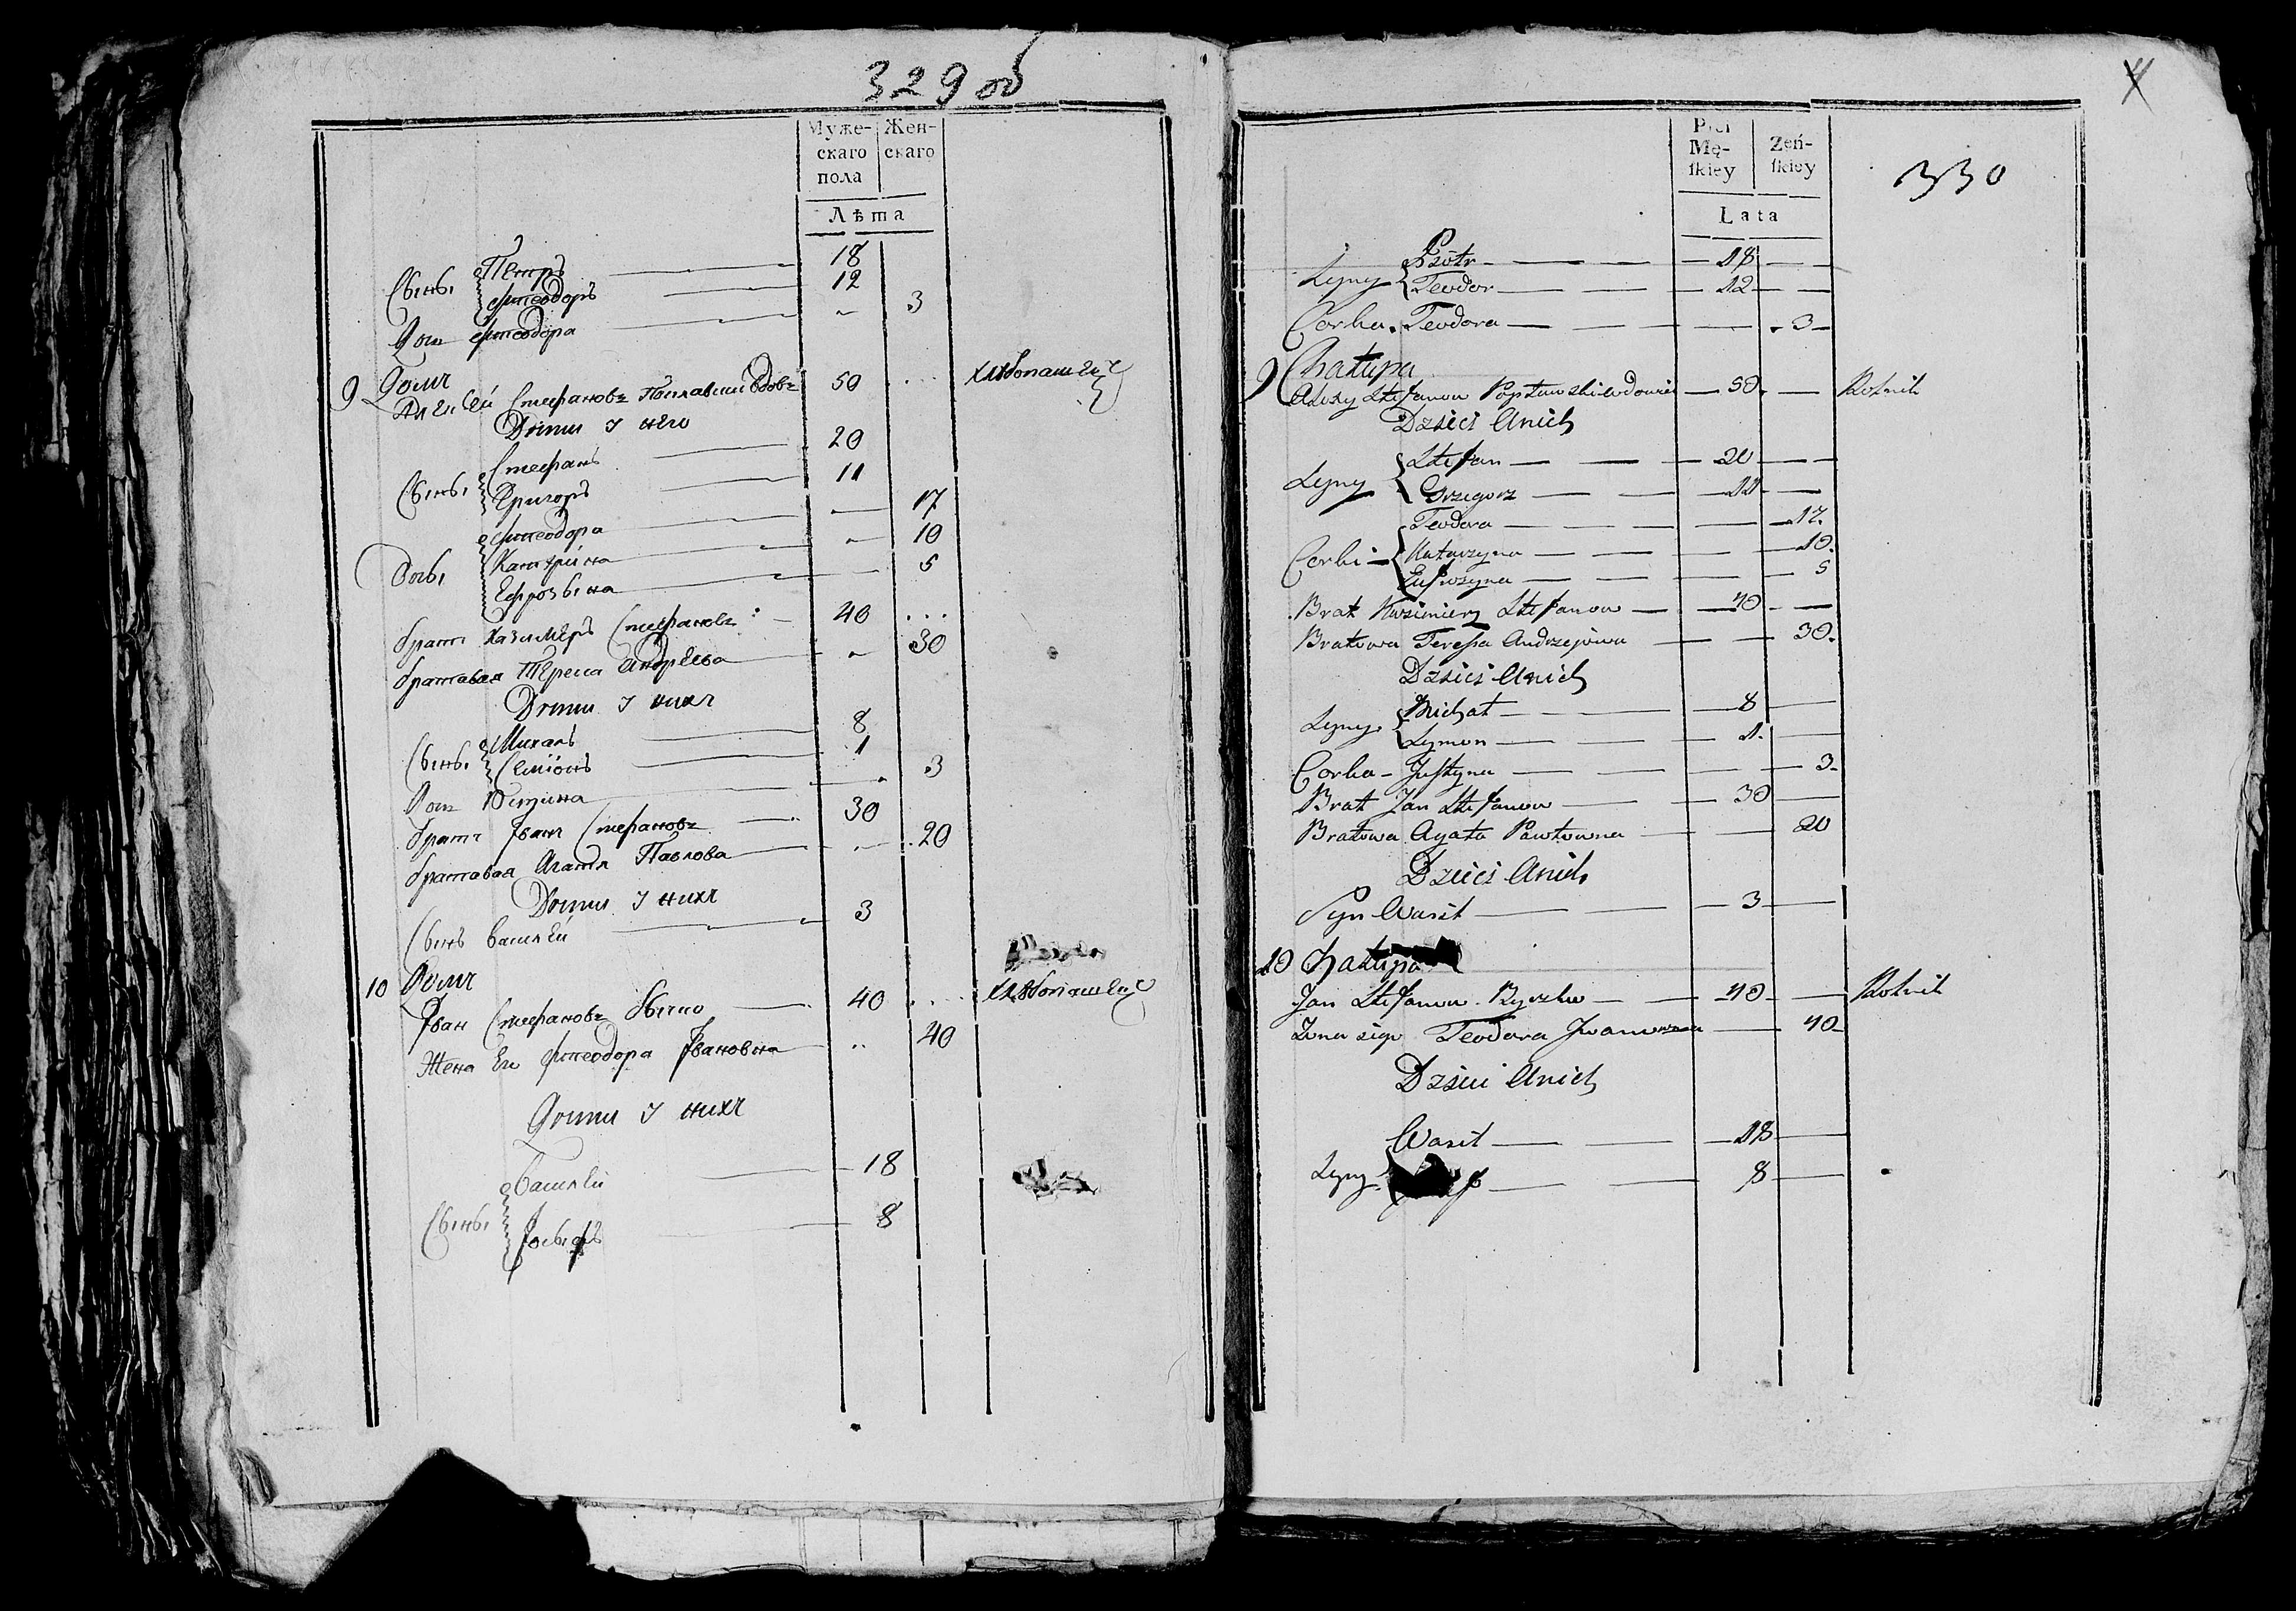 329 об
Муже-
скаго
пола
Жен-
скаго
Лѣта
Сыны
Петръ 18
Фтеодоръ 12
Доч Фтеодора 3
9 Домъ
Алексей Стефановъ Поплавский вдовъ 50 хлебопашец
Дети у него
Сыны
Стефанъ 20
Григоръ 11
Дочь
Фтеодора 17
Катярина 10
Ефрозына 5
братъ Казимеръ Стефановъ 40
братовая Тереса Андреева 30
Дети у нихъ
Сыны
Михалъ 8
Семіонъ 1
Доч Юстина 3
братъ Іванъ Стефановъ 30
братовая Агатя Павлова 20
Дети у нихъ
Сынъ Василей 3
10 Домъ
Іван Стефановъ 40 хлебопашец
Жена Ег Фтеодора Івановна 40
Дети у нихъ
Сыны
Василей 18
Іосыфъ 8
330
Płci
Mę-
ſkiey
Żeń-
ſkiey
Lata
Syny
Piotr 18
Teodor 12
Corka Teodora 3
9 Chałupa
Alexy Stefanow Popławski wdowiec 50 Rolnik
Dzieci Unich
Syny
Stefan 20
Grzegorz 11
Corki
Teodora 17
Katarzyna 10
Eufrozyna 5
Brat Kazimierz Stefanow 40
Bratowa Teressa Andrzejowa 30
Dzieci Unich
Syny
Michał 8
Symon 1
Corka Justyna 3
Brat Jan Stefanow 30
Bratowa Agata Pawłowna 20
Dzieci Unich
Syn Wasil 3
10 Chałupa
Jan Stefanow 40 Rolnik
Zona iego Teodora Jwanowna 40
Dzieci Unich
Wasil 18
Syny 8